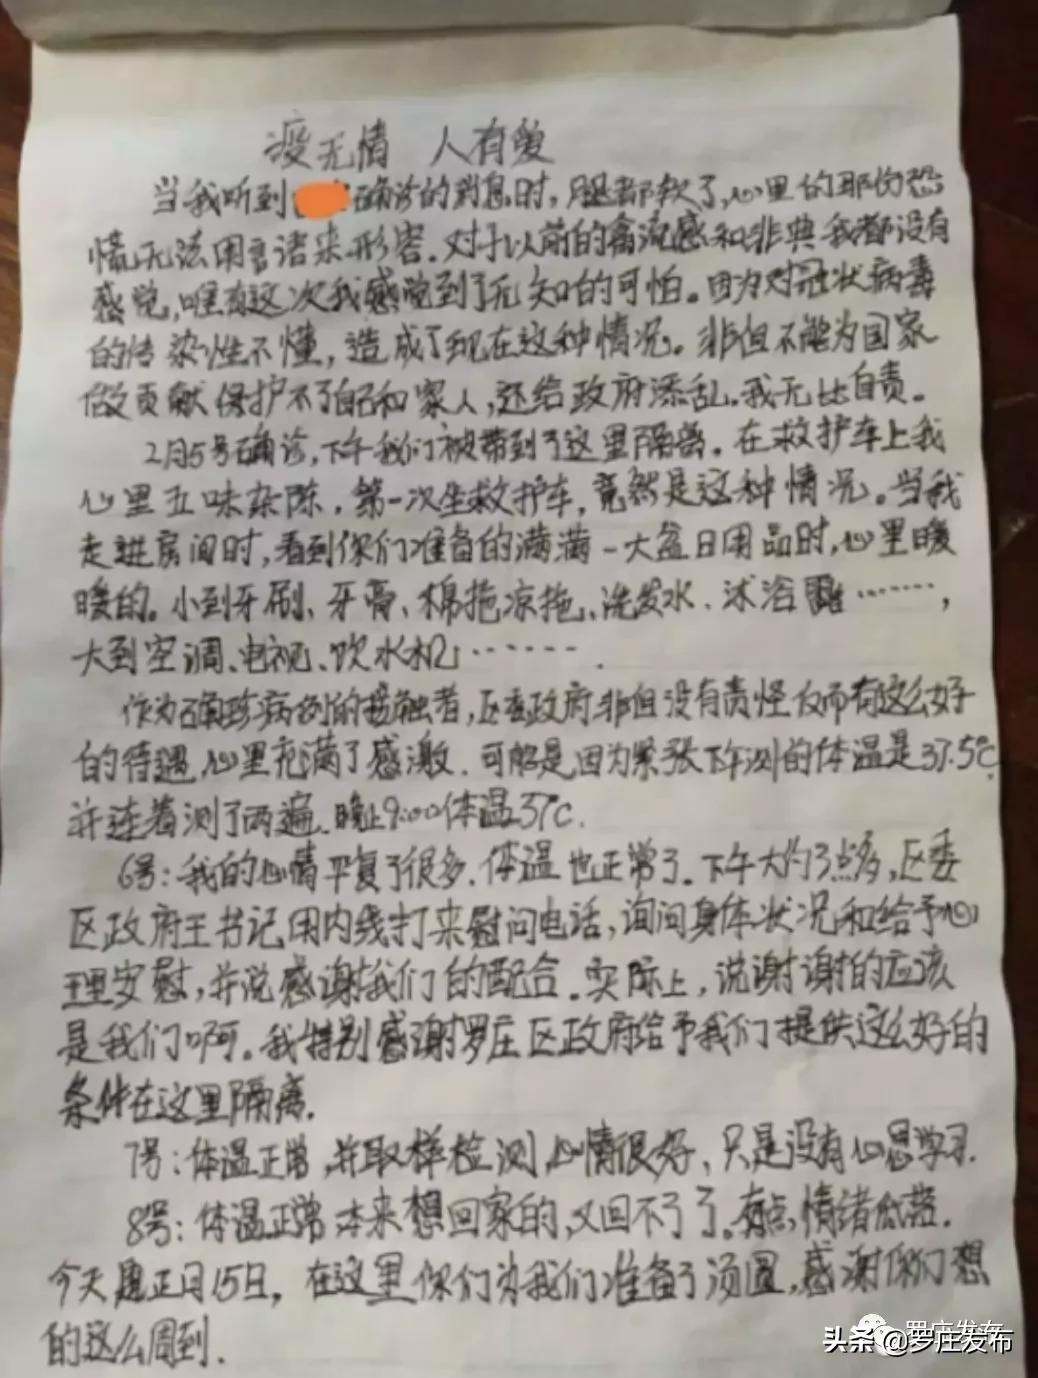 疫无情 人有爱
当我听到 确诊的消息时,腿都软了,心里的那份恐
慌无法用言语来形容。对于以前的禽流感和非典我都没有
感觉,唯有这次我感觉到了无知的可怕。因为对冠状病毒
的传染性不懂,造成了现在这种情况。非但不能为国家
做贡献保护不了自己和家人,还给政府添乱。我无比自责。
2月5号确诊,下午我们被带到了这里隔离。在救护车上我
心里五味杂陈,第一次坐救护车,竟然是这种情况。当我
走进房间时,看到你们准备的满满一大盆日用品时,心里暖
暖的。小到牙刷、牙膏、棉拖凉拖、洗发水、沐浴露……,
大到空调、电视、饮水机…….
作为确珍病例的接触者,区委政府非但没有责怪反而有这么好
的待遇,心里充满了感激.可能是因为紧张下午测的体温是37.5℃,
并连着测了两遍.晚上9:00体温37℃.
6号:我的心情平复了很多.体温也正常了.下午大约3点多,区委
区政府王书记用内线打来慰问电话,询问身体状况和给予心
理安慰,并说感谢我们的配合.实际上,说谢谢的应该
是我们啊。我特别感谢罗庄区政府给予我们提供这么好的
条件在这里隔离.
7号:体温正常,并取样检测,心情很好,只是没有心思学习.
8号:体温正常 本来想回家的,又回不了了。有点,情绪低落.
今天是正月15日,在这里你们为我们准备了汤圆,感谢你们想
的这么周到.
罗庄发布
头条@罗庄发布